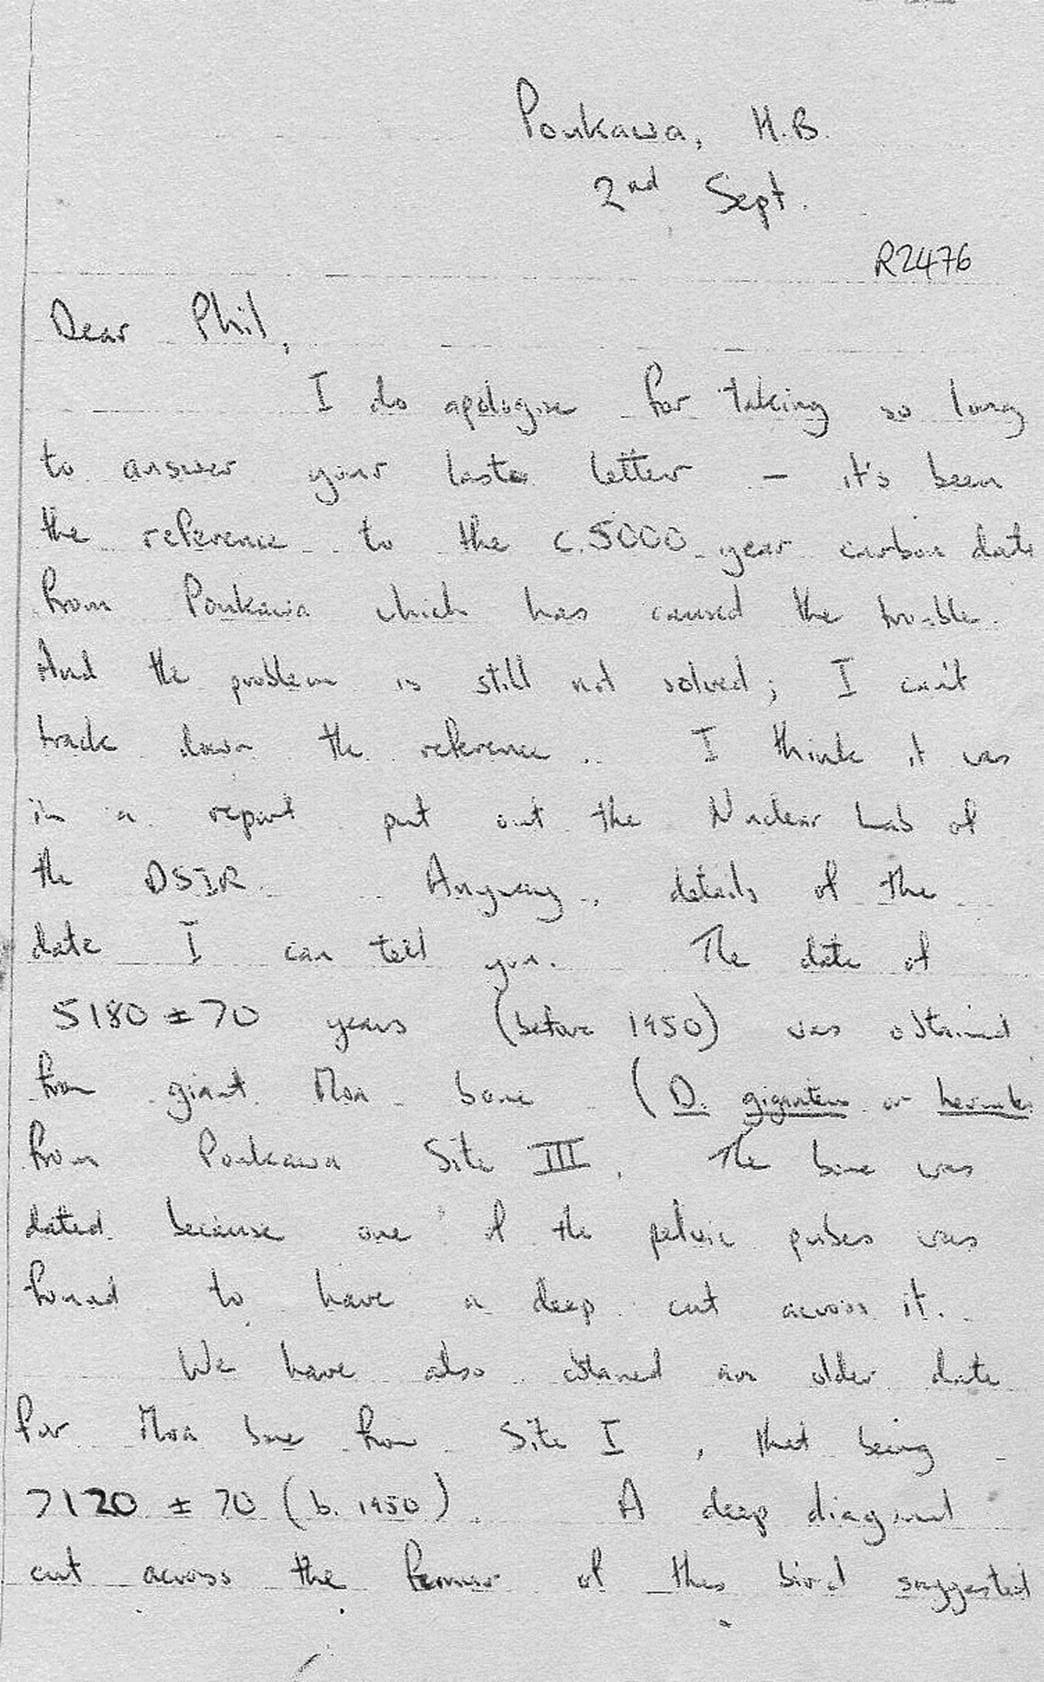 Poukawa, H.B.
2nd Sept.
R2476
Dear Phil,
I do apologise for taking so long
to answer your last letter - it's been
the reference to the c.5000 year carbon date
from Poukawa which has caused the trouble.
And the problem is still not solved; I can't
track down the reference. I think it was
in a report put out the Nuclear Lab of
the DSIR. Anyway, details of the
date I can tell you. The date of
5180 ± 70 years (before 1950) was obtained
from giant Moa bone (D. giganteus or
from Poukawa Site III. The bone was
dated because one of the pelvic pubes was
found to have a deep cut across it.
We have also obtained an older date
for Moa bone from Site I, that being
7120 ± 70 (b. 1950). A deep diagonal
cut across the femur of this bird suggested